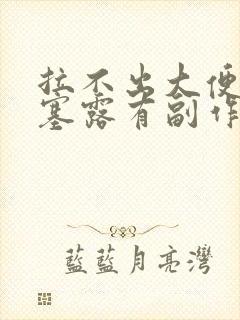 拉不出大便
塞露有副作
藍藍月亮灣